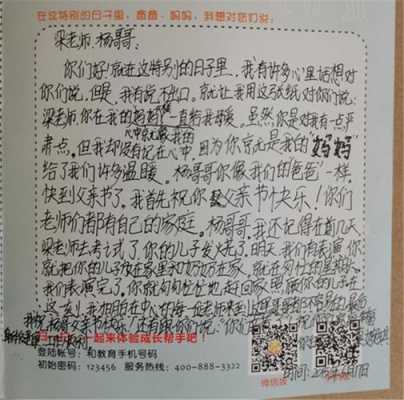 在这特别的日子里，爸爸、妈妈，我想对你们说：
梁老师、杨哥哥：
你们好！就在这特别的日子里，我有许多心里话想对
你们说，但是，我有说不出口。就让我用这张纸对你们说：
梁老师你在我的妈妈一直给我母爱，虽然你是对我有一点严
心中就像我的
肃点。但我却没有记在心中，因为你就是我的"妈妈"
给了我们许多温暖。杨哥哥你像我们的爸爸一样，
快到父亲节了。我首先祝你父亲节快乐！你们
老师们都有自己的家庭。杨哥哥，我还记得在前几天
梁老师去考试了，你的儿子发烧了。明天，我们有表演，你
就把你的儿子放在家里和奶奶在家，就在
我们表演完了，你就匆匆忙忙地赶回家照顾你的儿子在
这一刻，我
我祝杨哥父亲节快乐！还有跟你们说：你们
一起来体验成长帮手吧！
登陆帐号：和教育手机号码
初始密码：123456 服务热线：400-888-3322
微信版
时间：